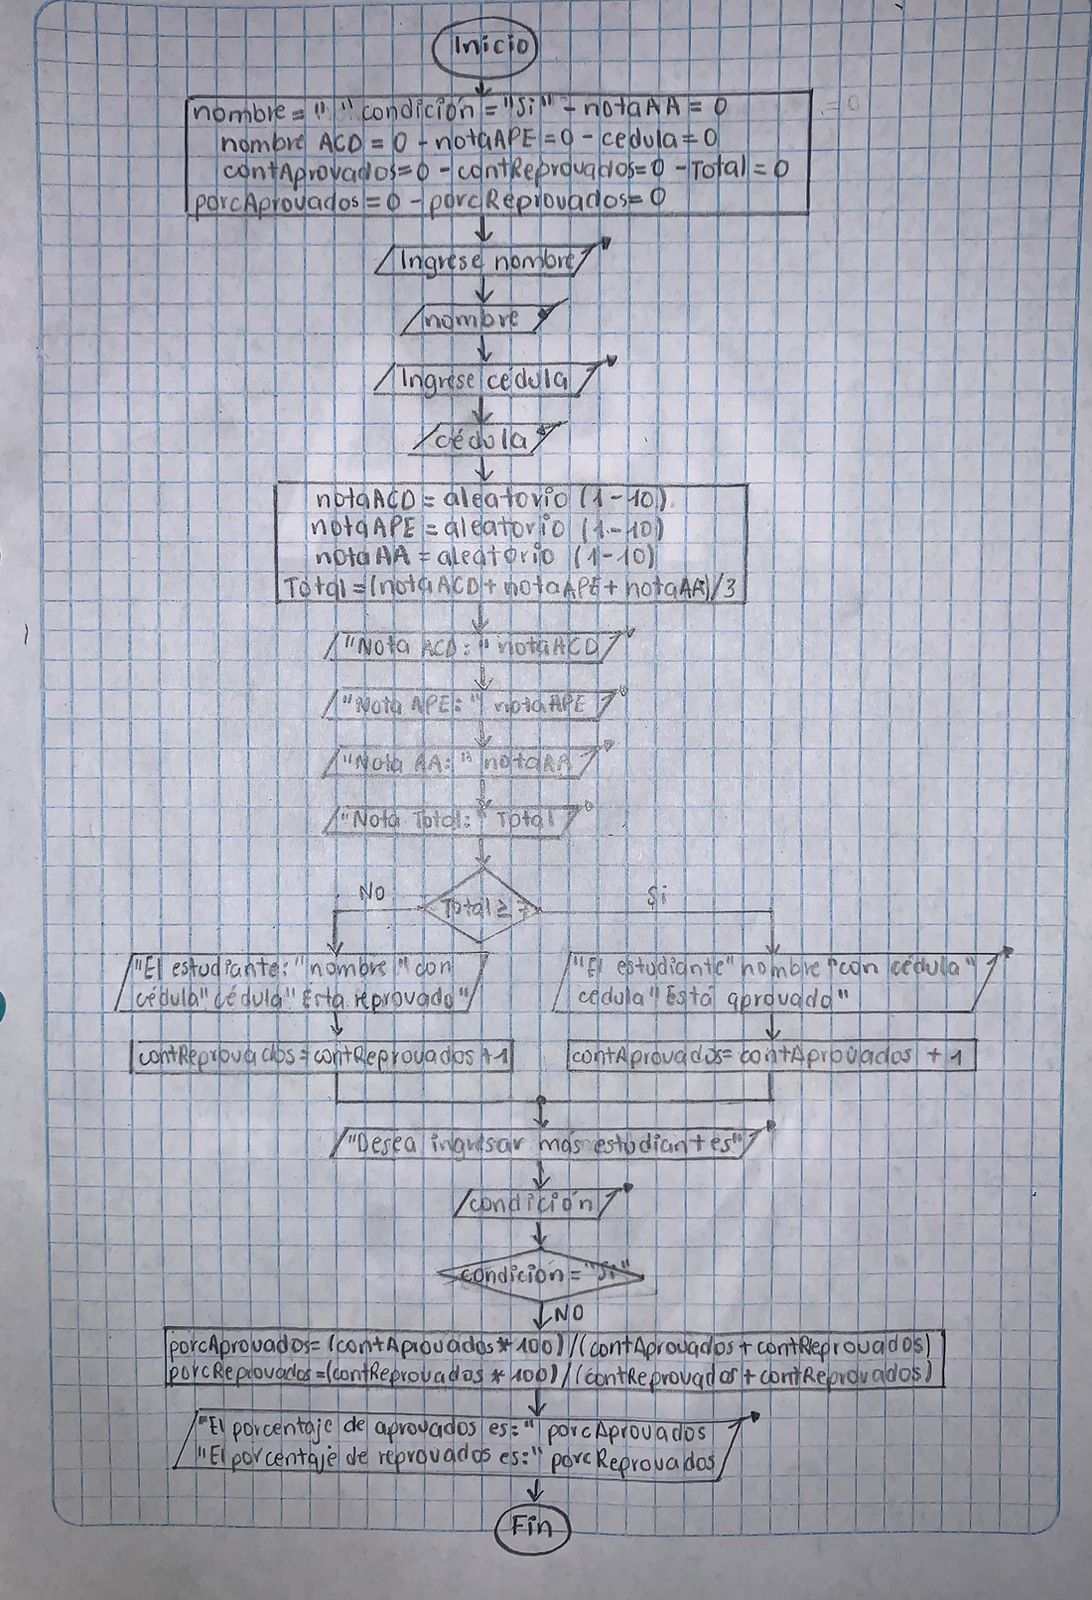 Inicio
nombre = " " condición = "Si" - notaAA = 0
nombre ACD = 0 - notaAPE = 0 - cedula = 0
contAprovados = 0 - contReprovados = 0 - Total = 0
porcAprovados = 0 - porcReprovados = 0
Ingrese nombre
nombre
Ingrese cédula
cédula
notaACD = aleatorio (1-10)
notaAPE = aleatorio (1-10)
notaAA = aleatorio (1-10)
Total = (notaACD + notaAPE + notaAA)/3
"Nota ACD: " notaACD
"Nota APE: " notaAPE
"Nota AA: " notaAA
"Nota Total: " Total
Total ≥ 7
NO
Si
"El estudiante: " nombre " con
cédula" cédula "Esta reprovado"
"El estudiante" nombre "con cédula"
cédula "Está aprovado"
contReprovados = contReprovados + 1
contAprovados = contAprovados + 1
"Desea ingresar más estudiantes"
condición
condición = "Si"
NO
porcAprovados = (contAprovados * 100) / (contAprovados + contReprovados)
porcReprovados = (contReprovados * 100) / (contReprovados + contReprovados)
"El porcentaje de aprovados es:" porcAprovados
"El porcentaje de reprovados es:" porcReprovados
Fin